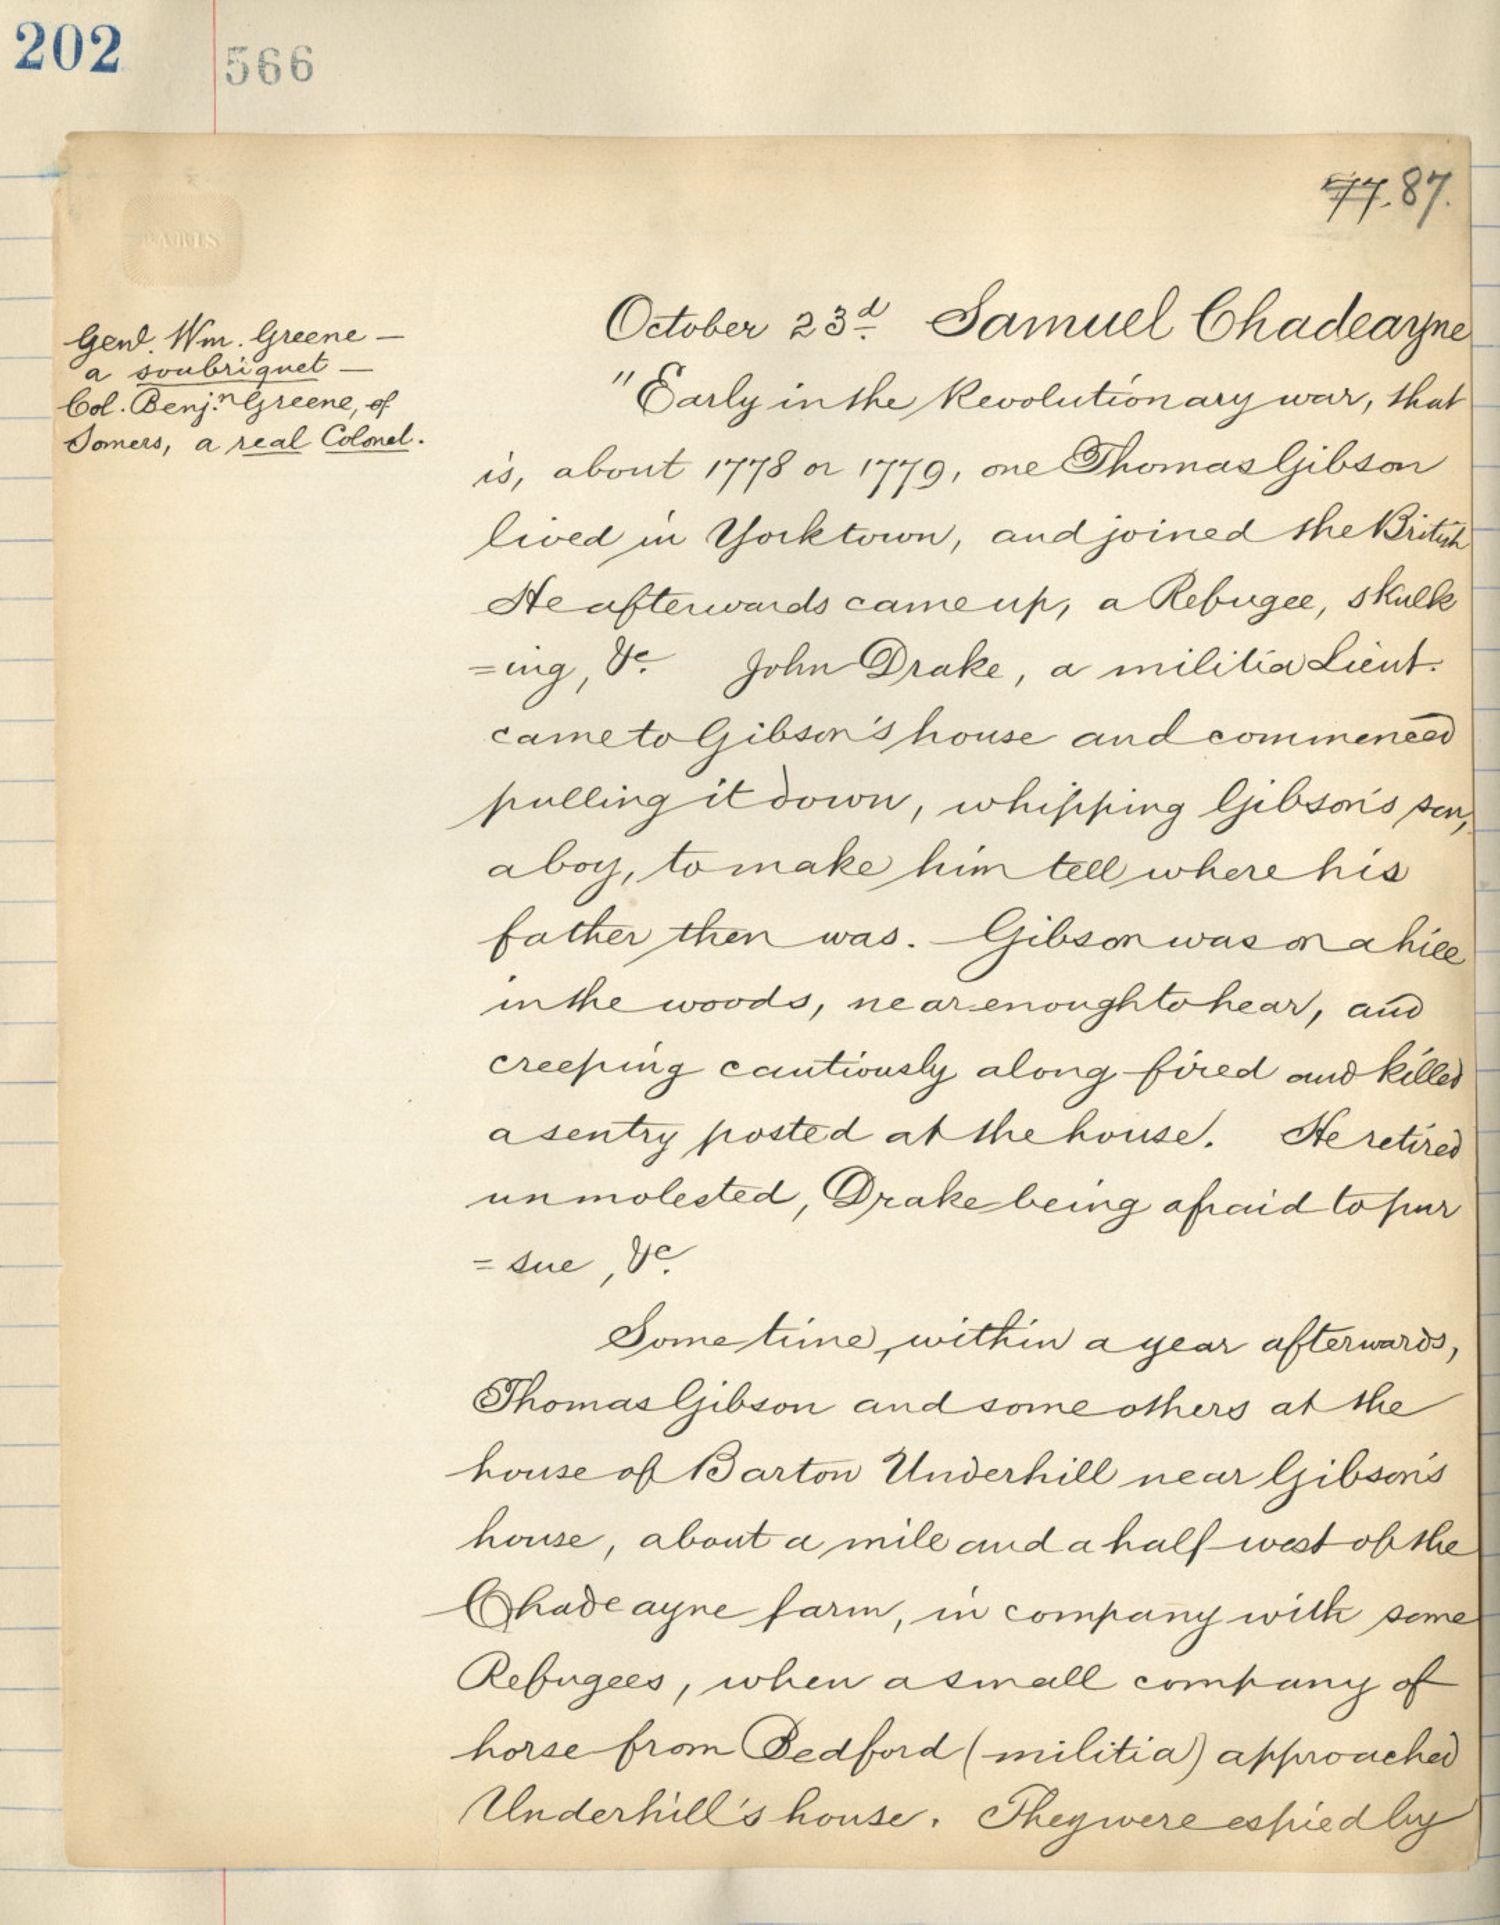 202
566
77. 87.
PARIS
Genl. Wm. Greene —
a soubriquet —
Col. Benj.n Greene, of
Somers, a real Colonel.
October 23d. Samuel Chadeayne
"Early in the Revolutionary war, that
is, about 1778 or 1779, one Thomas Gibson
lived in Yorktown, and joined the British
He afterwards came up, a Refugee, skulk
=ing, &c. John Drake, a militia Lieut.
came to Gibson's house and commenced
pulling it down, whipping Gibson's son,
a boy, to make him tell where his
father then was. Gibson was on a hill
in the woods, near enough to hear, and
creeping cautiously along fired and killed
a sentry posted at the house. He retired
unmolested, Drake being afraid to pur
=sue, &c.
Some time, within a year afterwards,
Thomas Gibson and some others at the
house of Barton Underhill near Gibson's
house, about a mile and a half west of the
Chadeayne farm, in company with some
Refugees, when a small company of
horse from Bedford (militia) approached
Underhill's house. They were espied by